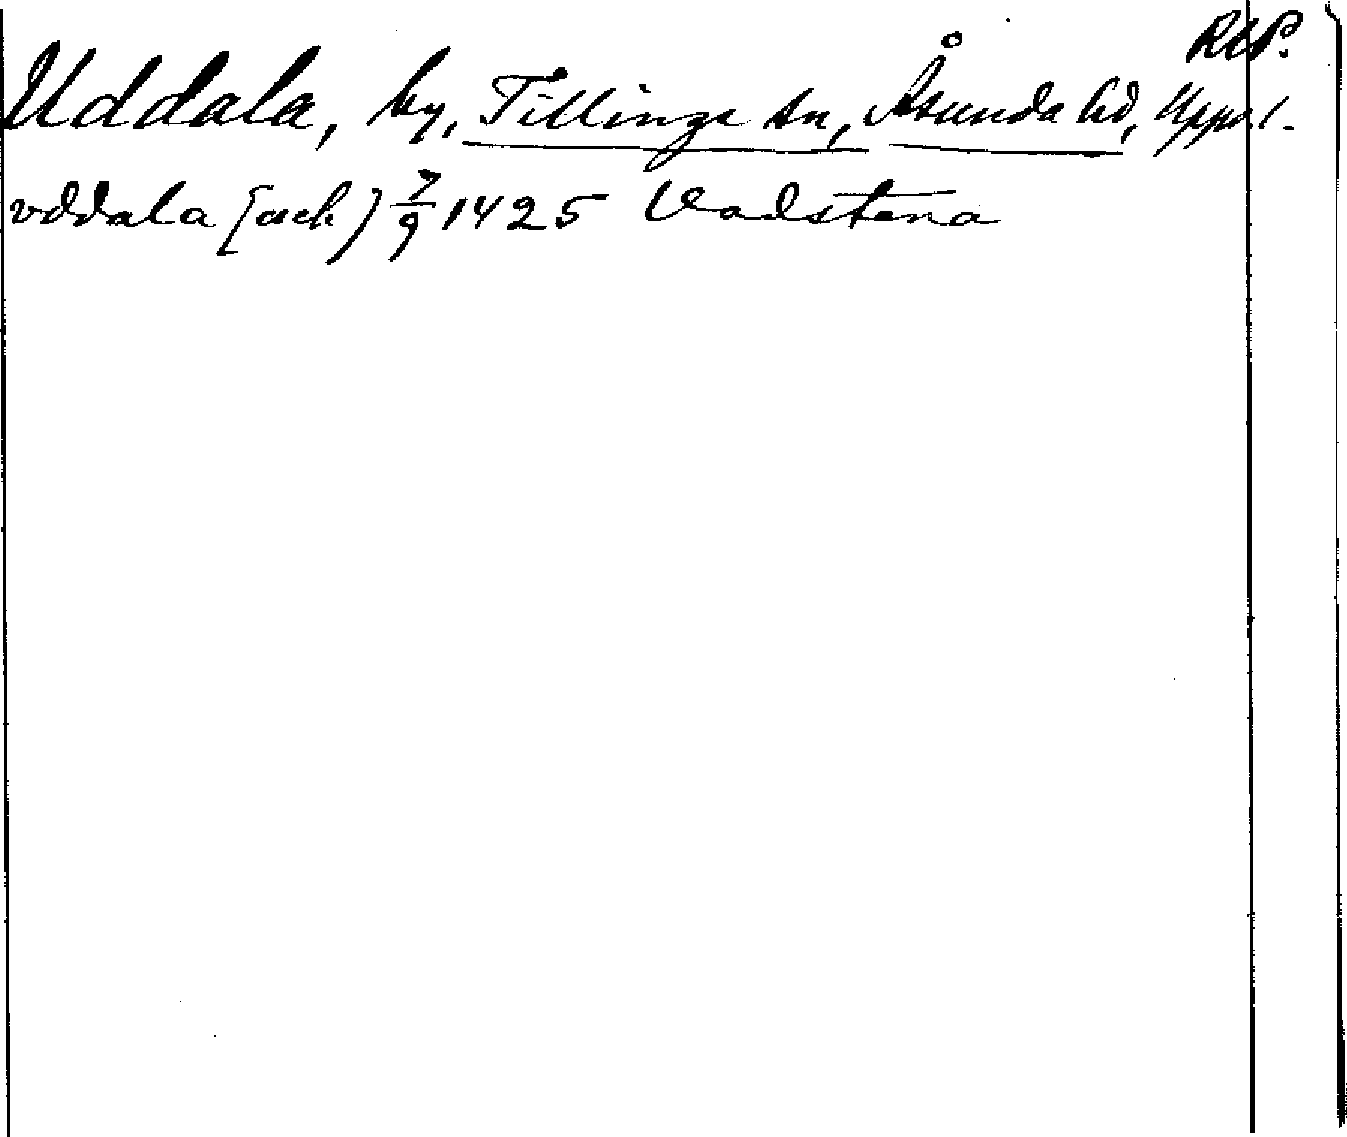 RAP.
Uddala, by, Tillinge sn, Åsunda hd, Uppl.
vddala [ack) 7/9 1425 Vadstena